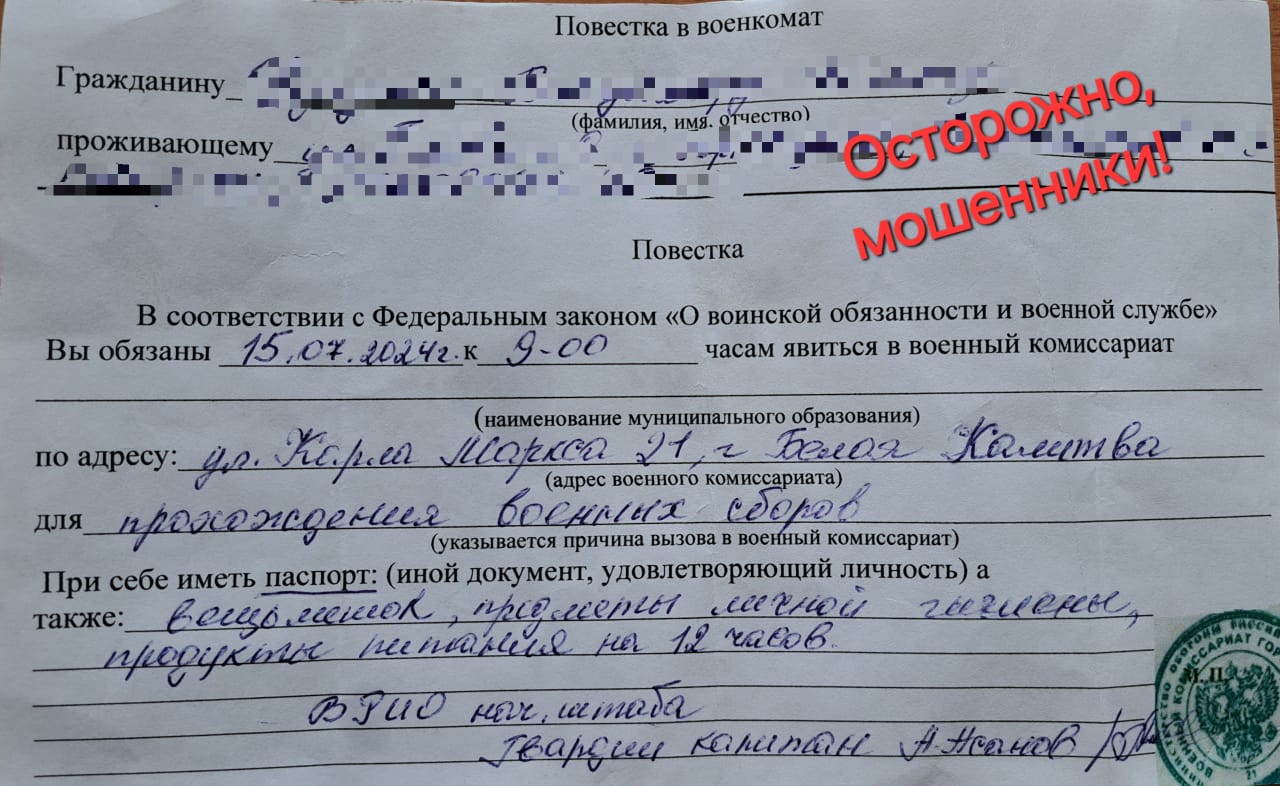 Повестка в военкомат
Гражданину
(фамилия, имя. отчество)
Осторожно,
мошенники!
проживающему
Повестка
В соответствии с Федеральным законом «О воинской обязанности и военной службе»
Вы обязаны 15.07.2024г. к 9-00 часам явиться в военный комиссариат
(наименование муниципального образования)
по адресу: ул. Карла Маркса 21, г Белая Калитва
(адрес военного комиссариата)
для прохождения военных сборов
(указывается причина вызова в военный комиссариат)
При себе иметь паспорт: (иной документ, удовлетворяющий личность) а
также: вещьмешок, предметы личной гигиены,
продукты питания на 12 часов.
М.П.
ВРИО нач. штаба
Гвардии капитан А. Жанов
21